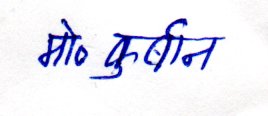 मो० कुर्बान